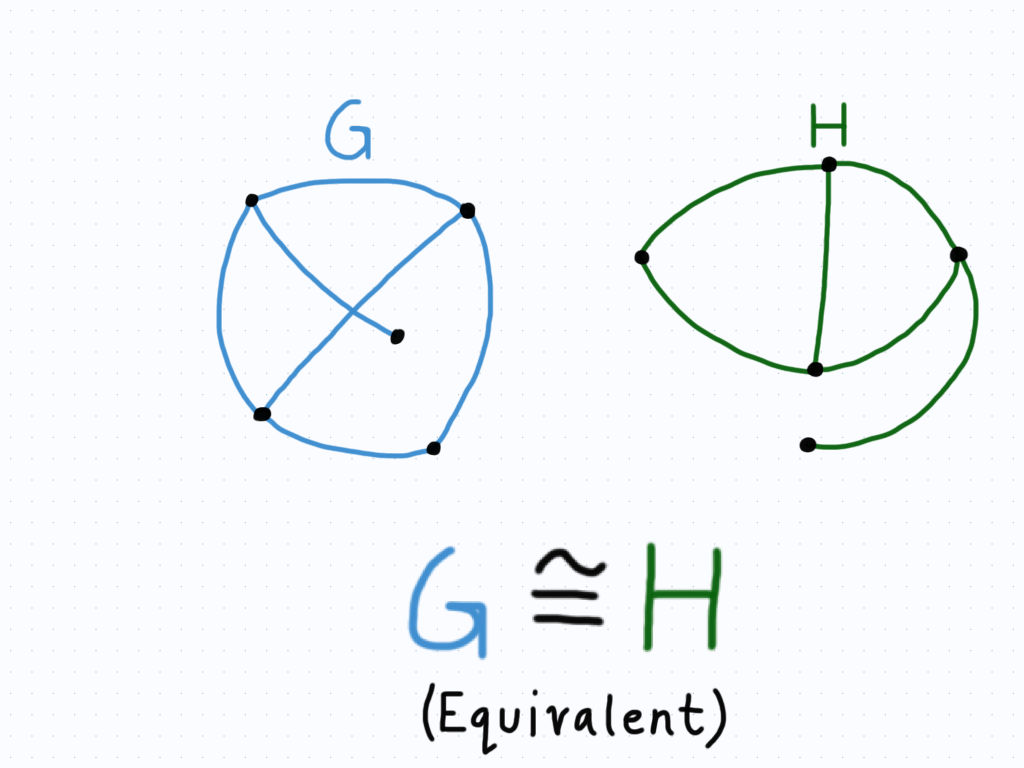 G
H
G ≅ H
(Equivalent)